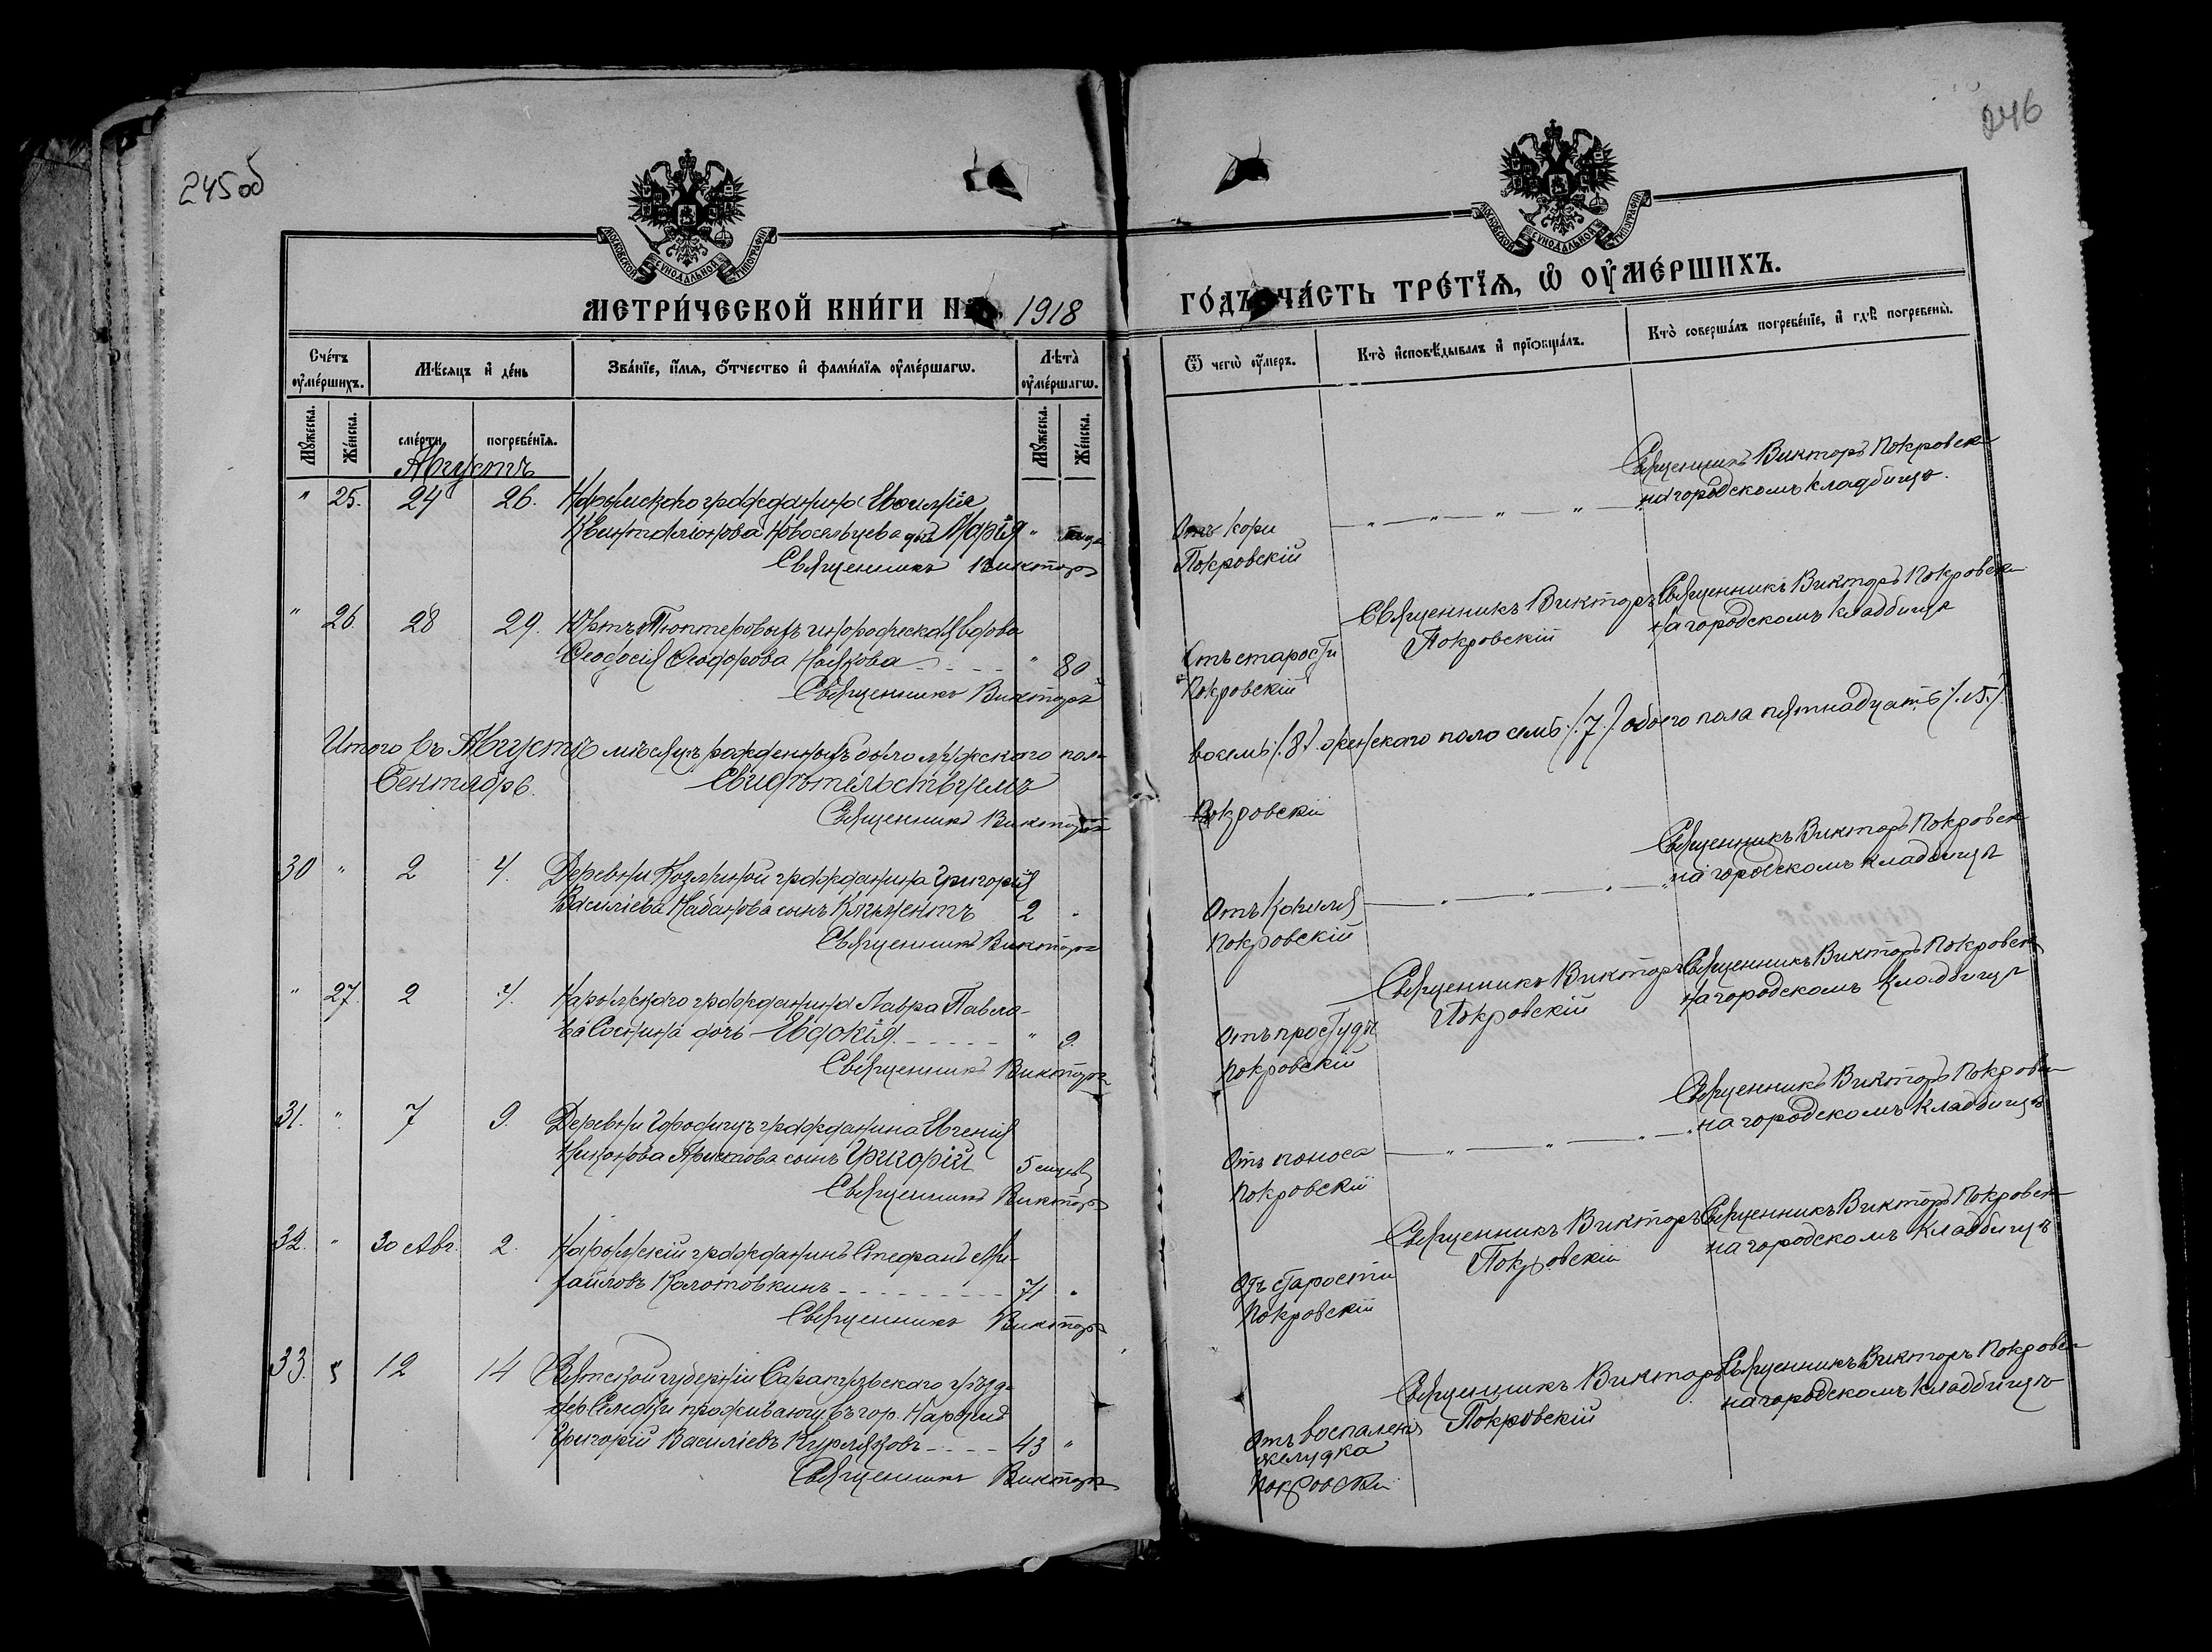 245об
246
МОСКОВСКОЙ СѴНОДАЛЬНОЙ ТИПОГРАФІИ
МОСКОВСКОЙ СѴНОДАЛЬНОЙ ТИПОГРАФІИ
МЕТРИ́ЧЕСКОЙ КНИ́ГИ Н 1918
ГО́ДЪ ЧА́СТЬ ТРЕ́ТЇѦ, Ѽ ОУ҆МЕ́РШИХЪ.
Сче́тъ оу҆ме́ршихъ.
Мѣ́сяцъ и҆ де́нь
Зва́нїе, и҆́мѧ, ѻ҆́тчество и҆ фами́лїѧ оу҆ме́ршагѡ.
Лѣ́та оу҆ме́ршагѡ.
Ѿ чегѡ̀ оу҆́меръ.
Кто̀ и҆сповѣ́дывалъ и҆ прїѡбща́лъ.
Кто̀ соверша́лъ погребе́нїе, и҆ гдѣ̀ погребены̀.
Мꙋ́жеска. Же́нска. сме́рти. погребе́нїѧ. Мꙋ́жеска. Же́нска.
Августъ
" 25. 24 26. Нарымскаго гражданина
Новосельцева дочь Марія "
Священникъ Викторъ
Отъ кори
Покровскій
Священникъ Викторъ Покровск
на городскомъ кладбищѣ.
" 26 28 29. Юртъ инородческая вдова
Ѳеодосія Ѳеодорова " 80
Священникъ Викторъ
Отъ старости
Покровскій
Священникъ Викторъ
Покровскій
Священникъ Викторъ Покровск
на городскомъ кладбищѣ
Итого въ Августѣ мѣсяцѣ было мужского пола
восемь /8/ женскаго пола семь /7/ обоего пола пятнадцать /15/.
Сентябрь. Свидѣтельствуемъ
Священникъ Викторъ
Покровскій
30 " 2 4. Деревни гражданина Григорія
Василіева сынъ Климентъ 2 "
Священникъ Викторъ
Отъ кашля
Покровскій
Священникъ Викторъ Покровск
на городскомъ кладбищѣ
" 27. 2 4. Нарымскаго гражданина Лавра Павло-
ва дочь Евдокія " 9.
Священникъ Викторъ
Отъ простуды
Покровскій
Священникъ Викторъ
Покровскій
Священникъ Викторъ Покровск
на городскомъ кладбищѣ
31. " 7 9. Деревни Городищъ гражданина Евгенія
сынъ Григорій 5
Священникъ Викторъ
Отъ поноса
Покровскій
Священникъ Викторъ Покровск
на городскомъ кладбищѣ
32. " 30 Авг. 2. Нарымскій гражданинъ Стефанъ Ми-
хайловъ Колотовкинъ 71 "
Священникъ Викторъ
Отъ старости
Покровскій
Священникъ Викторъ
Покровскій
Священникъ Викторъ Покровск
на городскомъ кладбищѣ
33. 12 14 Вятской губерніи Сарапульскаго уѣзда
проживающ. въ гор. Нарымѣ
Григорій Василіевъ Курляковъ 43 "
Священникъ Викторъ
Отъ воспаленія
желудка
Покровскій
Священникъ Викторъ
Покровскій
Священникъ Викторъ Покровск
на городскомъ кладбищѣ